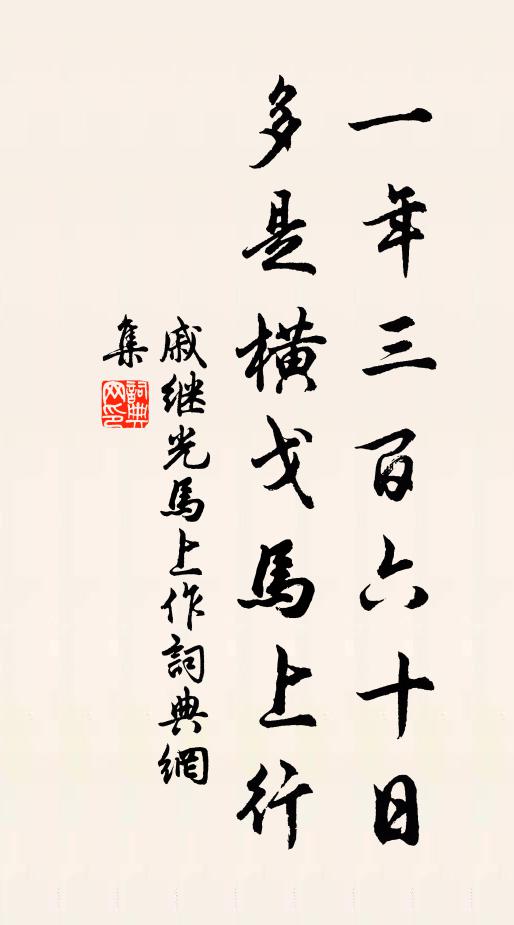 一年三百六十日
多是橫戈馬上行
戚继光馬上作詞典網
集
詞典网印